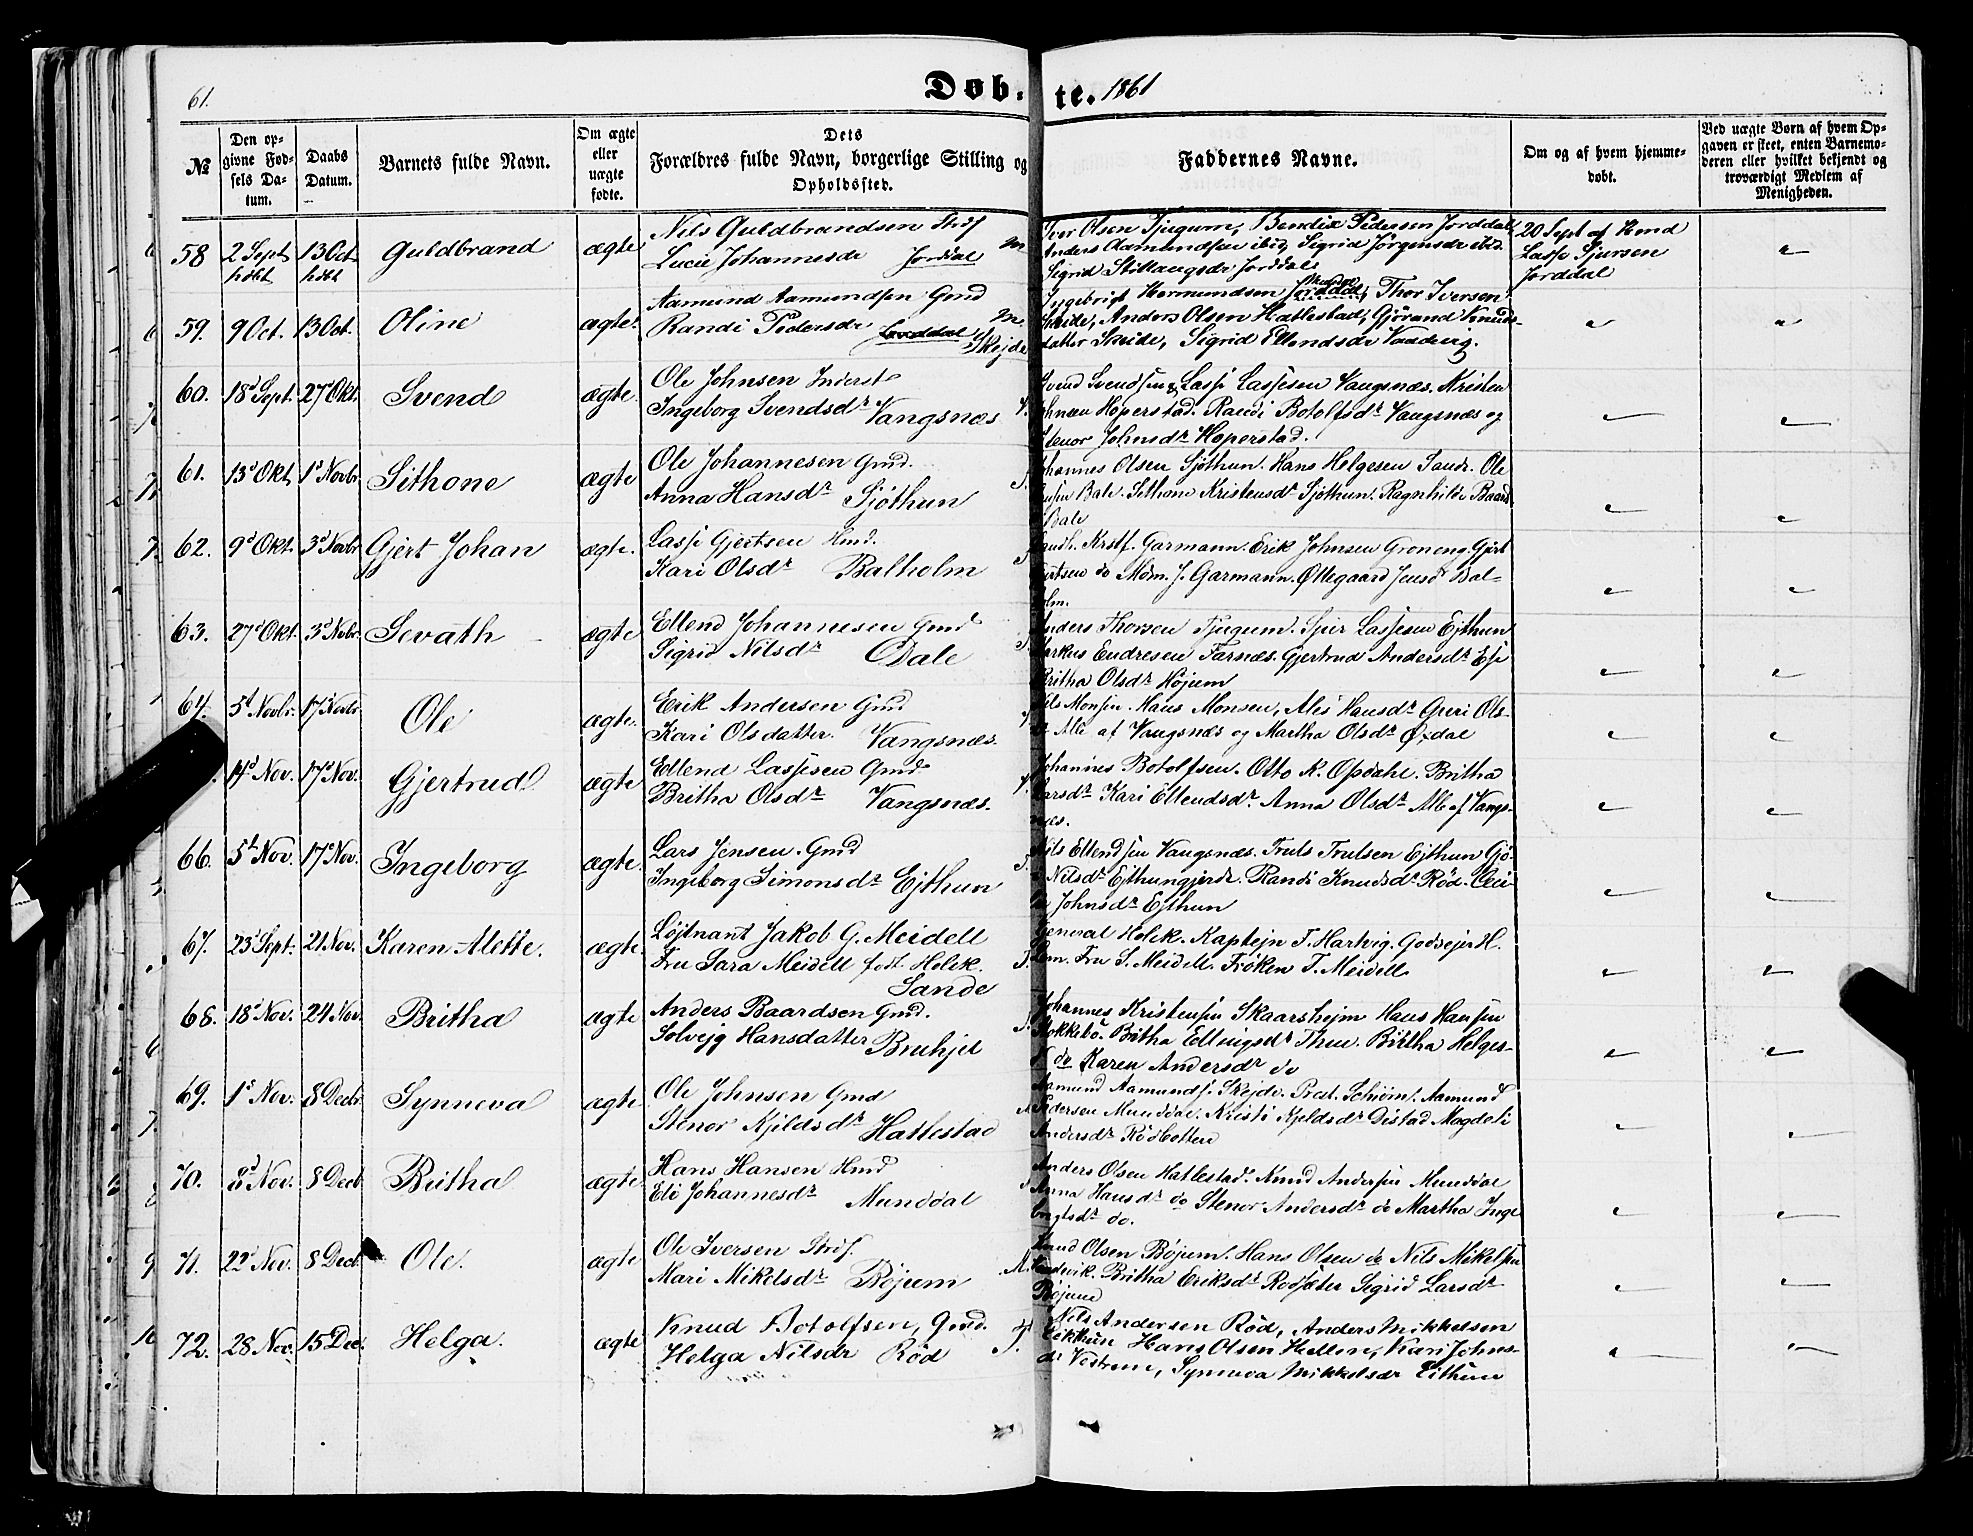 61.
Døb- te. 1861
№
Den op-
givne Fød-
sels Da-
tum.
Daabs
Datum.
Barnets fulde Navn.
Om ægte
eller
uægte
fødte.
Dets
Forældres fulde Navn, borgerlige Stilling og
Opholdssted.
Faddernes Navne.
Om og af hvem hjemme-
døbt.
Ved uægte Børn af hvem Op-
gaven er skeet, enten Barnemo-
deren eller hvilket bekjendt og
troværdigt Medlem af
Menigheden.
58 2 Sept 13 Oct Guldbrand ægte
Nils Guldbrandsen
Lucie Johannesdr Jordal
Iver Olsen Tjugum, Bendix Pedersen Jorddal
Anders Aamundsen ibid. Sigrid Jörgensdr ibid.
Sigrid Jorddal
20 Sept af
Lasse Sjursen
Jorddal
59. 9 Oct. 13 Oct. Oline ægte
Aamund Aamundsen Gmd
Randi Pedersdr Skejde
Ingebrigt Hermundsen Thor Iversen
Skeide, Anders Olsen Hatlestad, Gjörand Knuds-
datter Skeide, Sigrid Ellendsdr
60. 18d Sept. 27d Okt. Svend ægte
Ole Johnsen Inderst
Ingeborg Svendsdr Vangsnæs
Svend Svendsen, Lasse Lassesen Vangsnæs. Kristen
Johnsen Hoperstad. Randi Botolfsdr Vangsnæs og
Stenor Johnsdr Hoperstad.
61. 13d Okt 1d Novbr Sithone ægte
Ole Johannesen Gmd.
Anna Hansdr Sjöthun
Johannes Olsen Sjöthun. Hans Helgesen Sande. Ole
Bale. Sithone Kristensdr Sjöthun. Ragnhilde Baard
Bale
62. 9d Okt. 3d Novbr Gjert Johan ægte.
Lasse Gjertsen Hmd.
Kari Olsdr Balholm
Garmann. Erik Johnsen Groneng. Gjert
Gjertsen do Mdm. J. Garmann. Øllegaard Jensdr Bal-
holm.
63. 27d Okt. 3d Nobr Sevath ægte
Ellend Johannesen Gmd
Sigrid Nilsdr Dale
Anders Thorsen Tjugum. Sjur Lassesen Ejthun
Markus Endresen Farnæs. Gjertrud Andersdr Ese
Britha Olsdr Höjum
64. 5d Novbr. 17d Novbr Ole ægte.
Erik Andersen Gmd
Kari Olsdatter. Vangsnæs.
Nils Monsen. Hans Monsen, Ales Hansdr Greri Ols-
dr Alle af Vangsnæs og Martha Olsdr Øxdal
14d Nov. 17d Nov. Gjertrud ægte
Ellend Lassesen Gmd
Britha Olsdr Vangsnæs.
Johannes Botolfsen. Otto K. Opdahl. Britha
Larsdr Kari Ellendsdr. Anna Olsdr Alle af Vangs-
næs.
66. 5d Nov. 17d Nov. Ingeborg ægte.
Lars Jensen. Gmd
Ingeborg Simonsdr Ejthun
Nils Ellendsen Vangsnæs. Truls Trulsen Ejthun Gjö-
Nilsdr Ejthungjerde. Randi Knudsdr Röd. Ceci-
lia Johnsdr Ejthun
67. 23d Sept. 21 Nov. Karen Alette. ægte.
Löjtnant Jakob G. Meidell
Fru Sara Meidell født Holck.
Sande
General Holck. Kaptejn T. Hartvig. Godsejer H.
Fru S. Meidell. Fröken T. Meidell
68. 18d Nov. 24 Nov. Britha ægte
Anders Baardsen Gmd.
Solvejg Hansdatter
Johannes Kristensen Skaarshejm Hans Hansen
Britha Ellingsdr Thue. Britha Helges-
dr do Karen Andersdr do
69. 1d Nov. 8 Decbr. Synneva ægte
Ole Johnsen Gmd
Stenor Kjeldsdr Hatlestad
Aamund Aamunds. Skejde. Aamund
Pedersen Munddal. Kristi Kjeldsdr Distad Magdeli
Andersdr Rödbotten
70. 8d Nov. 8 Decb Britha ægte
Hans Hansen Hmd
Eli Johannesdr Munddal
Anders Olsen Hatlestad. Knud Andersen Munddal
Anna Hansdr do Stenor Andersdr do Martha Inge
brigtsdr do.
71. 22d Nov. 8 Decb Ole. ægte
Ole Iversen
Mari Mikelsdr Böjum
Knud Olsen Böjum. Hans Olsen do Nils Mikelsen
Britha Eriksdr Rödseter Sigrid Larsdr
Böjum
72. 28 Nov. 15 Dec. Helga. ægte
Knud Botolfsen, Gmd.
Helga Nilsdr Röd
Nils Andersen Röd, Anders Mikkelsen
Eitthun Hans Olsen Kari Johns-
dr Vestrem, Synneva Mikkelsdr Eithun